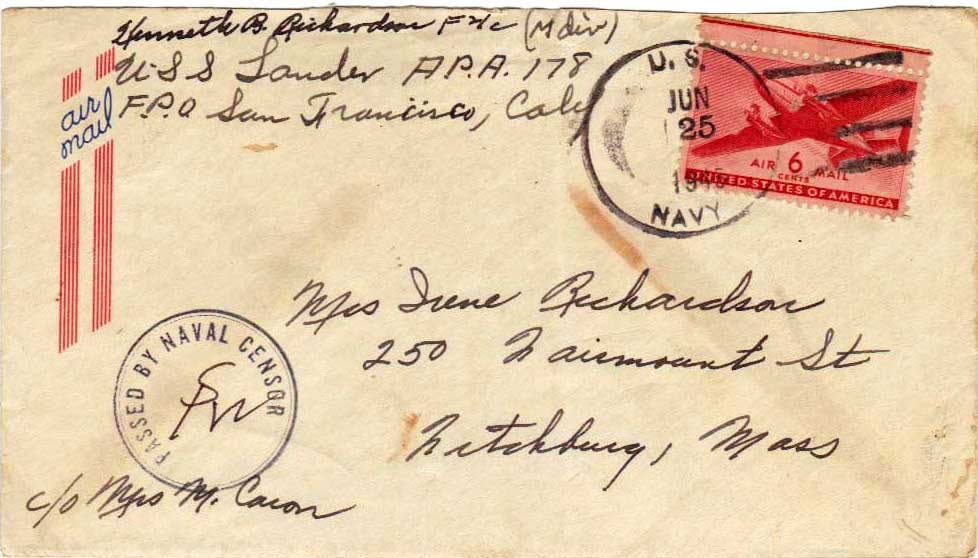 Kenneth B. Richardson F 2/c (M div)
U.S.S Lander A.P.A. 178
F.P.O San Francisco, Calif
air
mail
U.S.
JUN
25
1945
NAVY
AIR 6 MAIL
CENTS
UNITED STATES OF AMERICA
Mrs Irene Richardson
250 Fairmount St
Fitchburg, Mass
PASSED BY NAVAL CENSOR
c/o Mrs M. Caron